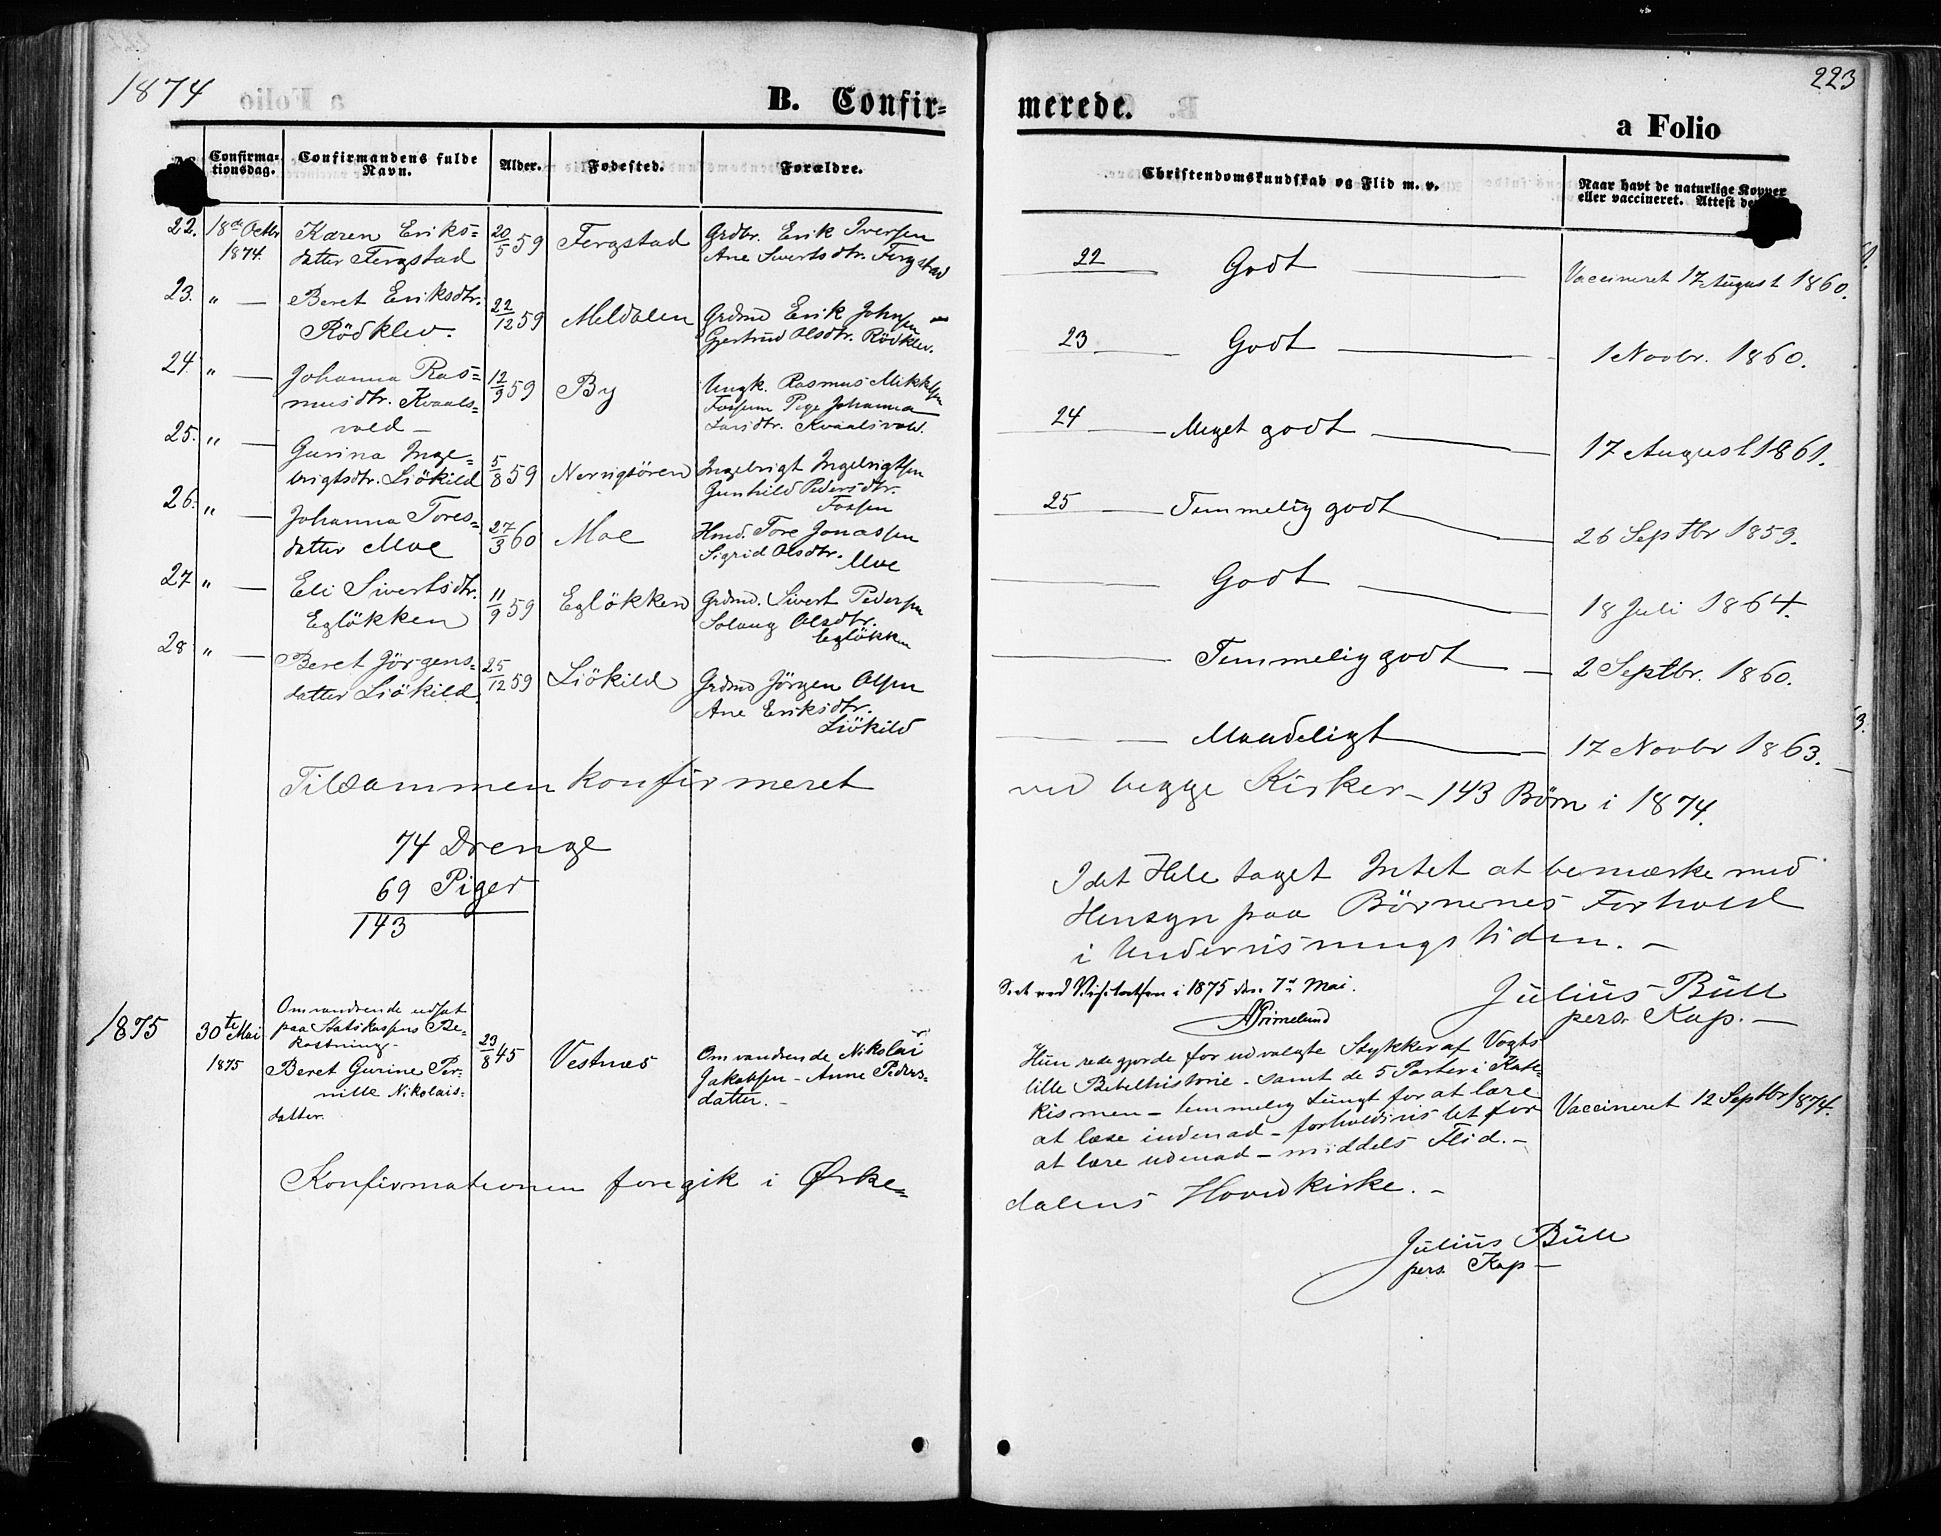 1874
B. Confir=
No
Confirma-
tionsdag.
Confirmandens fulde
Navn.
Alder.
Fødested.
Forældre.
22. 18de Octbr Karen Eriks= 20/5 59 Fergstad Grdbr. Erik Iversen
1874. datter Fergstad Ane Sivertsdtr. Fergstad
23. " — Beret Eriksdtr. 22/12 59 Meldalen Grdmd Erik Johnsen
Rödklev. Gjertrud Olsdtr. Rödklev.
24. " — Johanna Ras= 12/9 59 By Ungk. Rasmus Mikkelsen
musdtr. Kvaals= Fossum Pige Johanna
vold — Larsdtr. Kvaalsvold.
25. " — Gurina Inge= 5/8 59 Ingebrigt Ingebrigtsen
brigtsdtr. Liökild Gunhild Pedersdtr.
Fossen
26. " — Johanna Tores= 27/3 60 Moe Hmd. Tore Jonassen
datter Moe Sigrid Olsdtr.
Moe
27 " — Eli Sivertsdtr. 11/9 59 Eglökken Grdmd. Sivert Pedersen
Eglökken Solaug Olsdtr.
Eglökken
28 " — Beret Jörgens= 25/12 59 Liökild Grdmd Jörgen Olsen
datter Liökild. Ane Eriksdtr.
Liökild
Tilsammen konfirmeret
74 Drenge
69 Piger
143
1875 30te Mai Omvandrende udsat
paa Statskassens Be=
kostning.
1875 Beret Gurine Per= 23/8 45 Vestnes Omvandrende Nikolai
nille Nikolais= Jakobsen – Anne Peders=
datter. datter. –
Konfirmationen foregik i Ørke=
223
merede.
a Folio
Christendomskundskab og Flid m. v.
Naar havt de naturlige Kopper
eller vaccineret. Attest
22 — Godt — Vaccineret 17 August 1860.
23 — Godt — 1 Novbr. 1860.
24 — Meget godt — 17 August 1861.
25 — Temmelig godt — 26 Septbr 1859.
— Godt — 18 Juli 1864.
— Temmelig godt — 2 Septbr. 1860.
— Maadeligt — 17 Novbr 1863.
ved begge Kirker – 143 Børn i 1874.
I det Hele taget Intet at bemærke med
Hensyn paa Börnenes Forhold
i Undervisningstiden. –
Julius Büll
pers. Kap. –
Seet ved Visitatsen i 1875 den 7de Mai.
Grimelund
Hun redegjorde for udvalgte Stykker af Vogts
lille Bibelhistorie – samt de 5 Parter i Kate=
kismen – temmelig tungt for at lære
at læse indenad – forholdsvis let for
at lære udenad – middels Flid. –
Vaccineret 12 Septbr 1874.
dalens Hovedkirke. –
Julius Büll
pers. Kap –